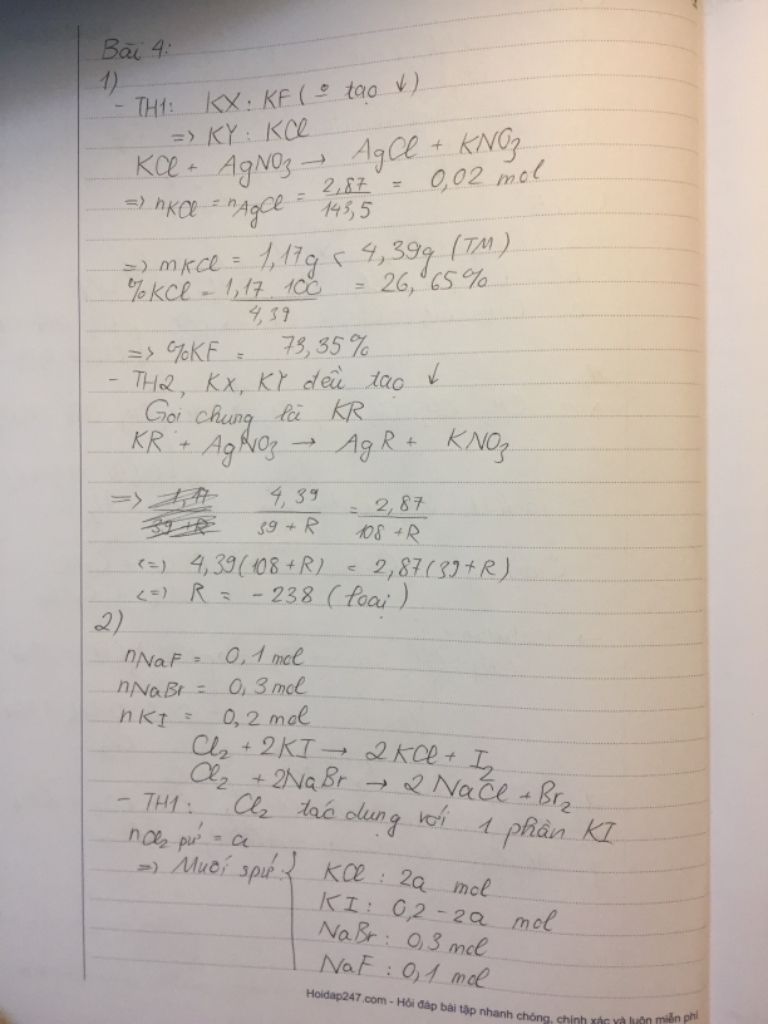 Bài 4:
1)
- TH1: KX: KF (º tạo ↓)
=> KY: KCl
KCl + AgNO3 → AgCl + KNO3
=> nKCl = nAgCl = 2,87/143,5 = 0,02 mol
=> mKCl = 1,17g < 4,39g (TM)
%KCl = 1,17.100/4,39 = 26,65%
=> %KF = 73,35%
- TH2, KX, KY đều tạo ↓
Gọi chung là KR
KR + AgNO3 → AgR + KNO3
=> 4,39/39+R = 2,87/108+R
<=> 4,39(108+R) = 2,87(39+R)
<=> R = -238 (loại)
2)
nNaF = 0,1 mol
nNaBr = 0,3 mol
nKI = 0,2 mol
Cl2 + 2KI → 2KCl + I2
Cl2 + 2NaBr → 2NaCl + Br2
- TH1: Cl2 tác dụng với 1 phần KI
nCl2 pứ = a
=> Muối spứ: { KCl: 2a mol
KI: 0,2 - 2a mol
NaBr: 0,3 mol
NaF: 0,1 mol
Hoidap247.com - Hỏi đáp bài tập nhanh chóng, chính xác và luôn miễn phí